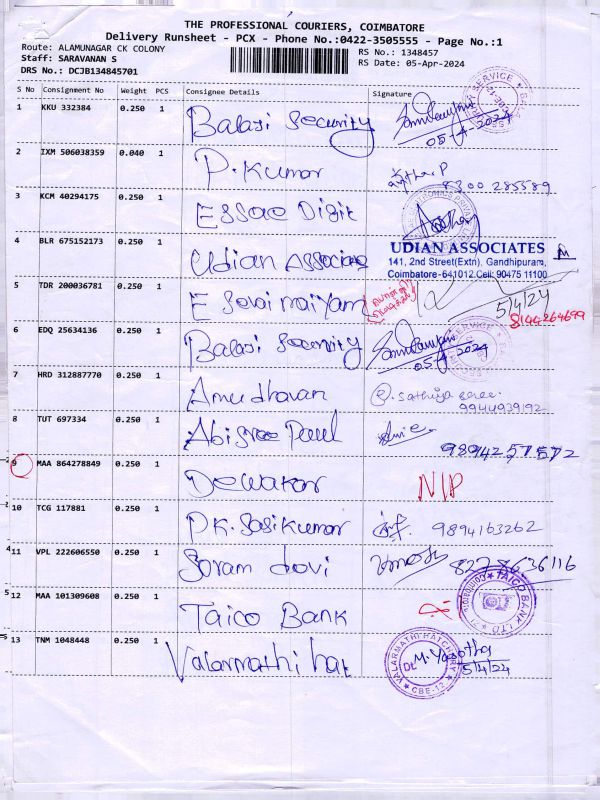 THE PROFESSIONAL COURIERS, COIMBATORE
Delivery Runsheet - PCX - Phone No.:0422-3505555 - Page No.:1
Route: ALAMUNAGAR CK COLONY
RS No.: 1348457
Staff: SARAVANAN S
RS Date: 05-Apr-2024
DRS No.: DCJB134845701
S No Consignment No Weight PCS Consignee Details Signature
1 KKU 332384 0.250 1 Balaji Security 05/4/2024
2 IXM 506038359 0.040 1 P. Kumar 8300 285589
3 KCM 40294175 0.250 1 Essae Digit
4 BLR 675152173 0.250 1 Udian Associates
UDIAN ASSOCIATES
141, 2nd Street(Extn), Gandhipuram,
Coimbatore-641012.Cell: 90475 11100
5 TDR 200036781 0.250 1 E Sevai maiyam 5/4/24
8144264699
6 EDQ 25634136 0.250 1 Balaji Security 05/4/2024
7 HRD 312887770 0.250 1 Amudhavan @. Sathiya
9944939192
8 TUT 697334 0.250 1 Abisree Paul
9894257572
9 MAA 864278849 0.250 1 Dewakar N/P
10 TCG 117881 0.250 1 P.K. Sasikumar 9894163262
11 VPL 222606550 0.250 1 Soram devi 8278636116
12 MAA 101309608 0.250 1 Taico Bank
TAICO BANK LTD
13 TNM 1048448 0.250 1 Valarmathi hat M. Yasotha
5/4/24
VALARMATHI HATCHERY
CBE-12